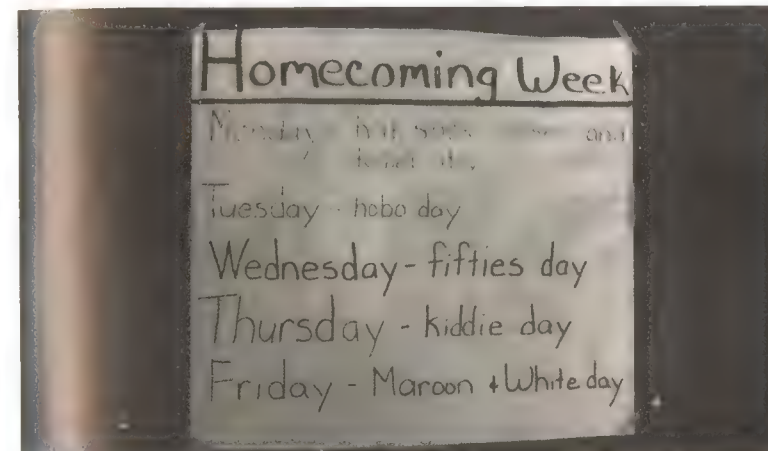 Homecoming Week
Monday - and
day
Tuesday - hobo day
Wednesday - fifties day
Thursday - kiddie day
Friday - Maroon + White day